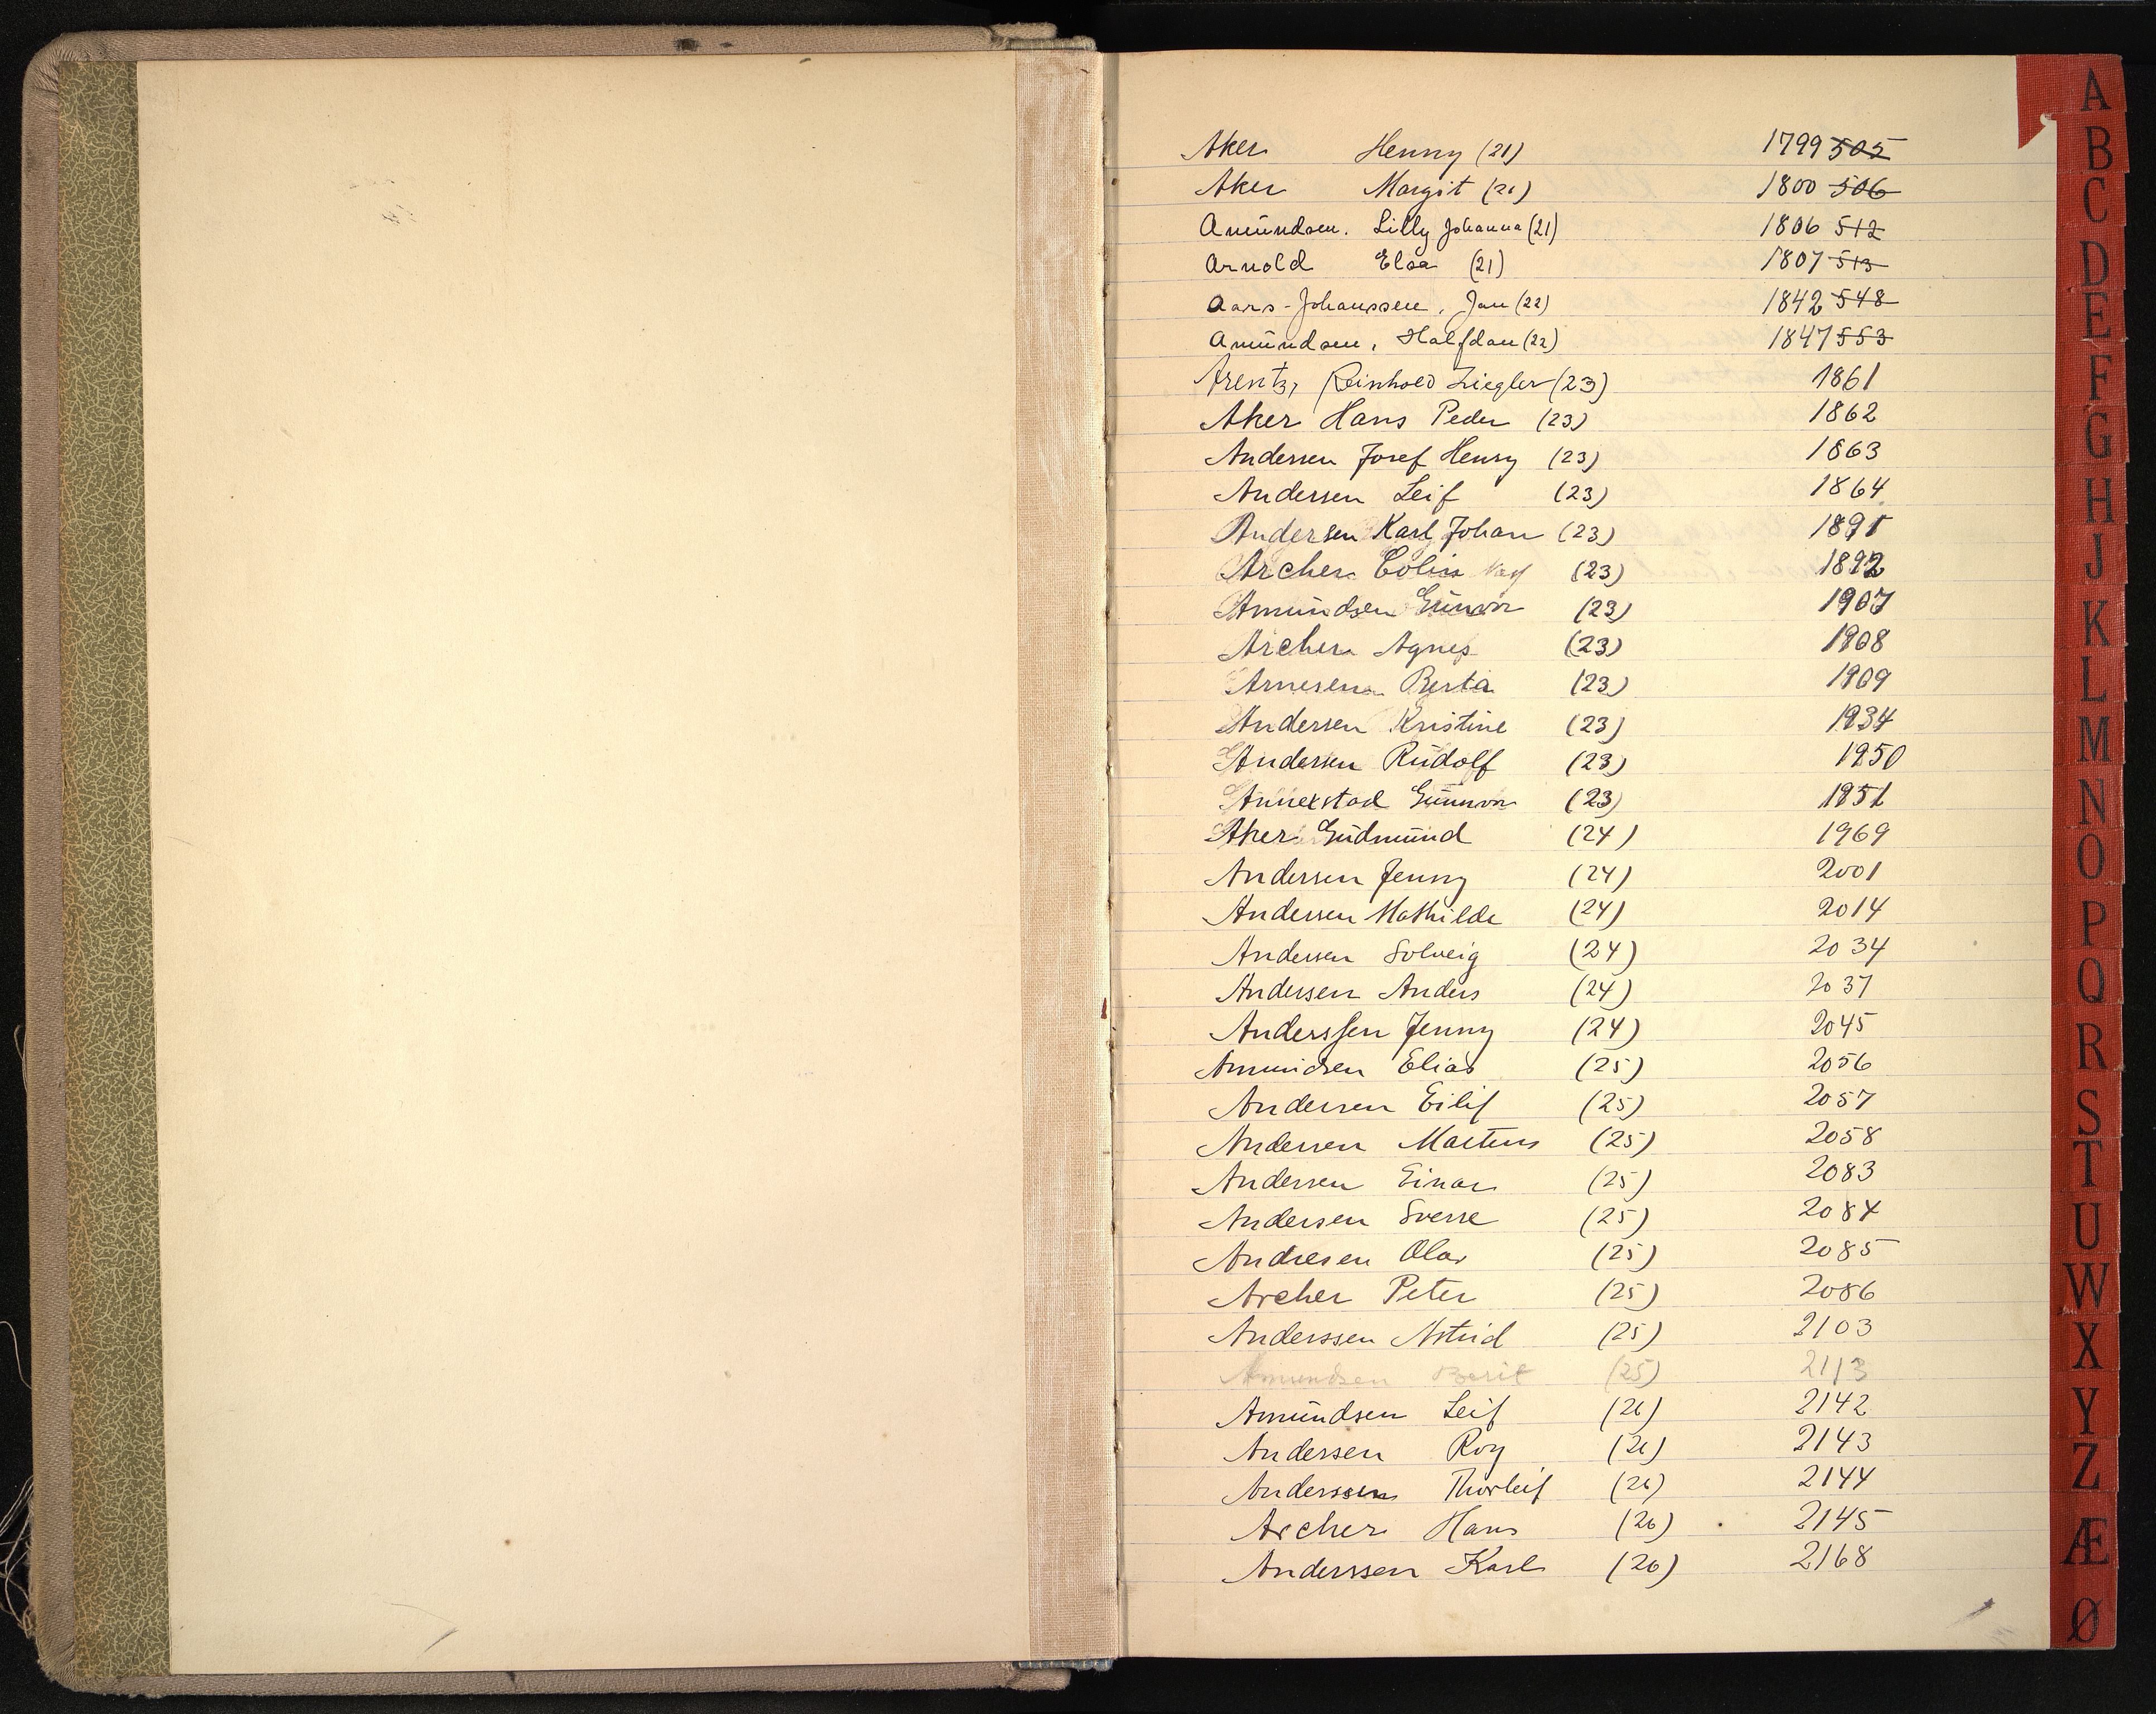 Aker Henny (21) 1799 505
Aker Margit (21) 1800 506
Amundsen. Lilly Johanna (21) 1806 512
Arnold Elsa (21) 1807 513
Aars-Johanssen, Jan (22) 1842 548
Amundsen, Halfdan (22) 1847 553
Arentz, Reinhold Ziegler (23) 1861
Aker Hans Peder (23) 1862
Andersen Josef Henry (23) 1863
Andersen Leif (23) 1864
Andersen Karl Johan (23) 1891
Archer Colin (23) 1892
Amundsen Gunvor (23) 1907
Archer Agnes (23) 1908
Arnesen Berta (23) 1909
Andersen Kristine (23) 1934
Andersen Rudolf (23) 1950
Annexstad Gunvor (23) 1951
Aker Gudmund (24) 1969
Andersen Jenny (24) 2001
Andersen Mathilde (24) 2014
Andersen Solveig (24) 2034
Andersen Anders (24) 2037
Anderssen Jenny (24) 2045
Amundsen Elias (25) 2056
Andersen Eilif (25) 2057
Andersen Martens (25) 2058
Andersen Einar (25) 2083
Andersen Sverre (25) 2084
Andresen Olav (25) 2085
Archer Peter (25) 2086
Anderssen Astrid (25) 2103
Amundsen Berit (25) 2113
Amundsen Leif (26) 2142
Andersen Roy (26) 2143
Anderssen Thorleif (26) 2144
Archer Hans (26) 2145
Anderssen Karl (26) 2168
A
B
C
D
E
F
G
H
J
K
L
M
N
O
P
Q
R
S
T
U
W
X
Y
Z
Æ
Ø